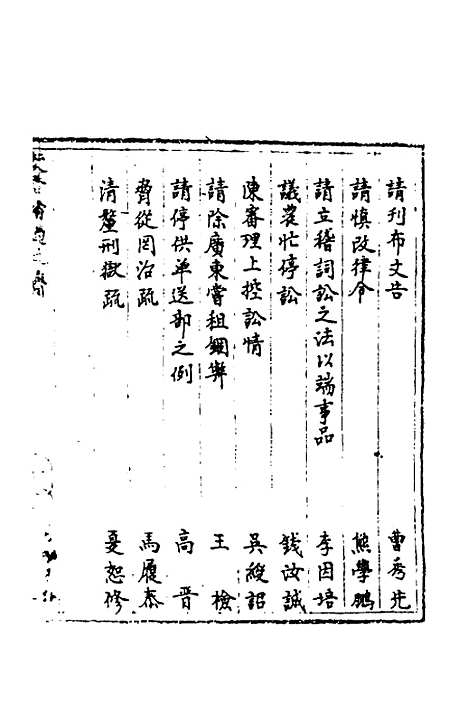 請刊布文告 曹秀先
請慎改律令 熊學鵬
請立稽詞訟之法以端事品 李因培
議農忙停訟 錢汝誠
陳審理上控訟情 吳綬詔
請除廣東當租錮弊 王檢
請停供單送部之例 高晋
脅從罔治疏 馬履泰
清釐刑獄疏 戛恕修